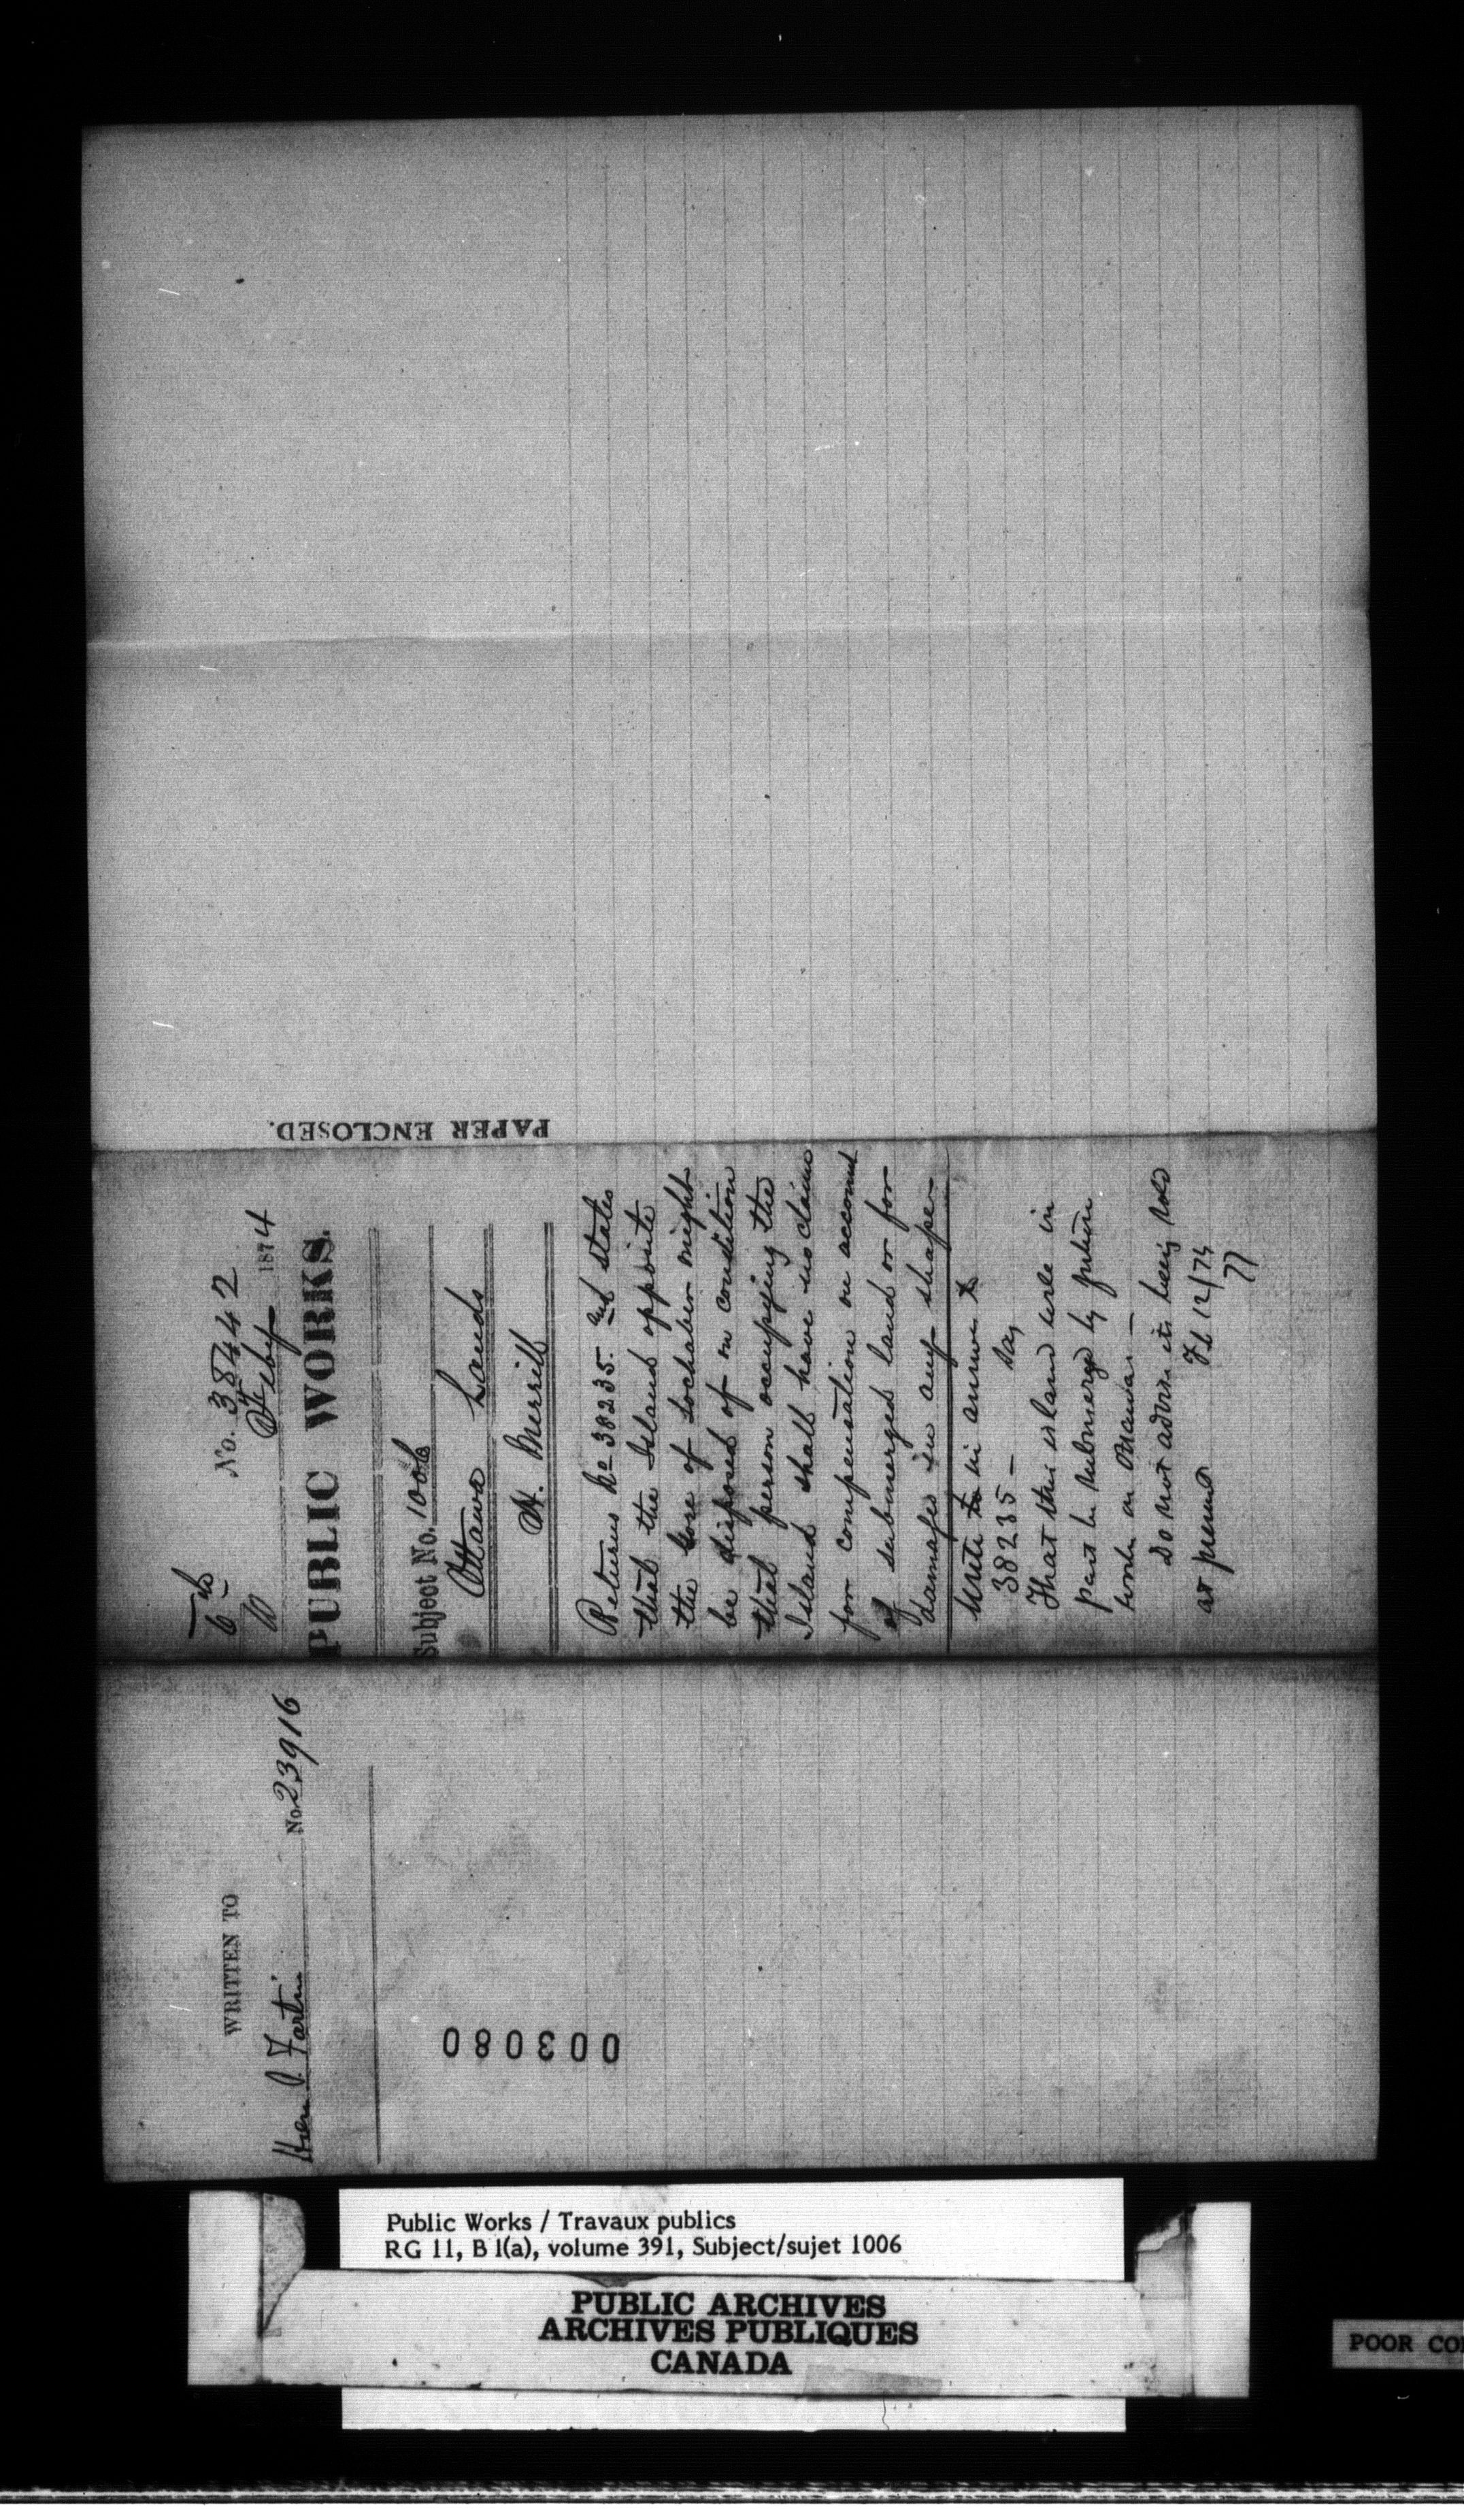 6th
No. 38442
10
Feby 1874
PUBLIC WORKS.
Subject No. 1006
Ottawa Lands
H. Merrill
Returns No 38235 and states
that the Island opposite
the Gore of Lochaber might
be disposed of on condition
that person occupying the
Island shall have no claim
for compensation on account
of submerged land or for
damages in any shape
Write in answer to
38235 — Say
That this island will in
part be submerged by future
works on Ottawa —
Do not advise its being sold
at present
Fb 12/74
PAPER ENCLOSED.
WRITTEN TO
No 23916
003080
Public Works / Travaux publics
RG 11, B 1(a), volume 391, Subject/sujet 1006
PUBLIC ARCHIVES
ARCHIVES PUBLIQUES
CANADA
POOR